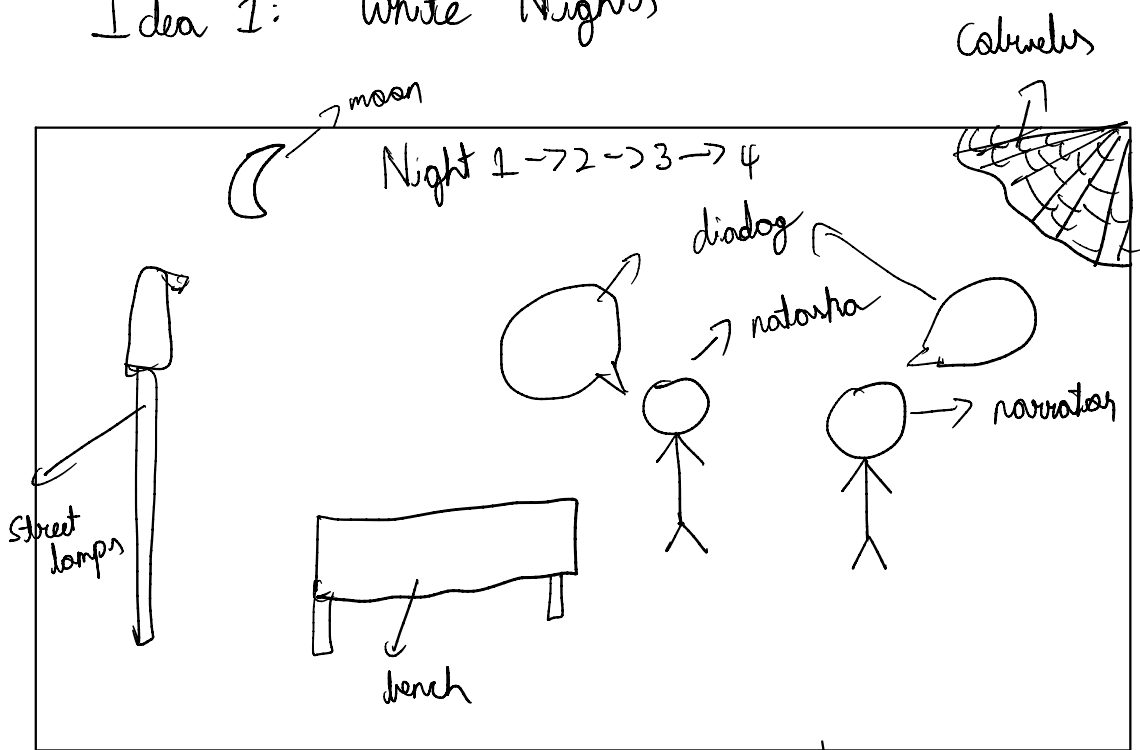 Idea 1: White Nights
Cobwebs
moon
Night 1 -> 2 -> 3 -> 4
dialog
natasha
narrator
street
lamps
bench